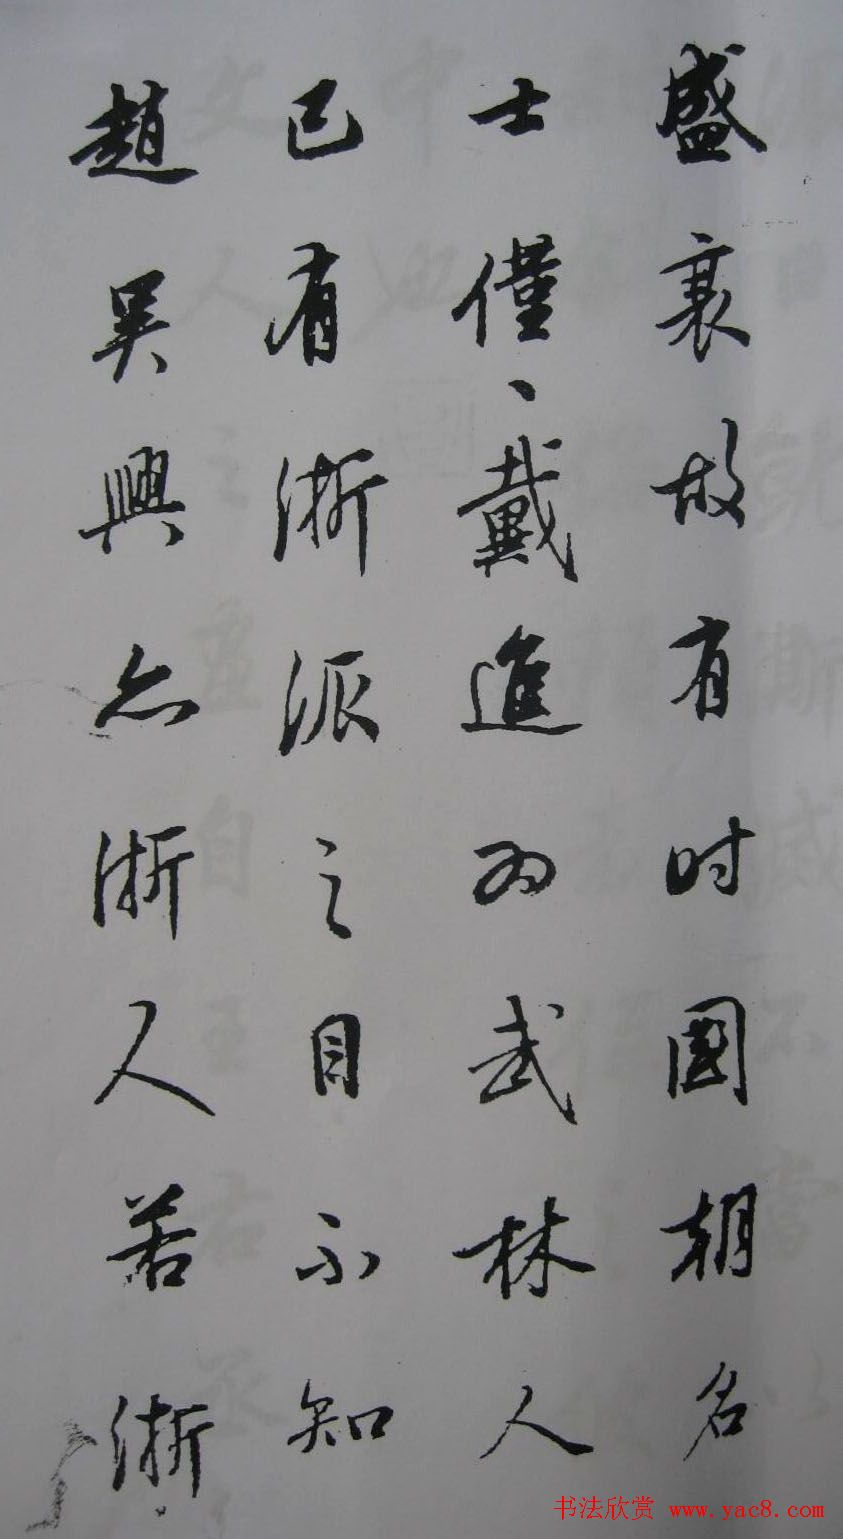 盛衰故有时國朝名
士僅、戴進为武林人
已有浙派之目不知
趙吴興亦浙人若浙
书法欣赏 www.yac8.com